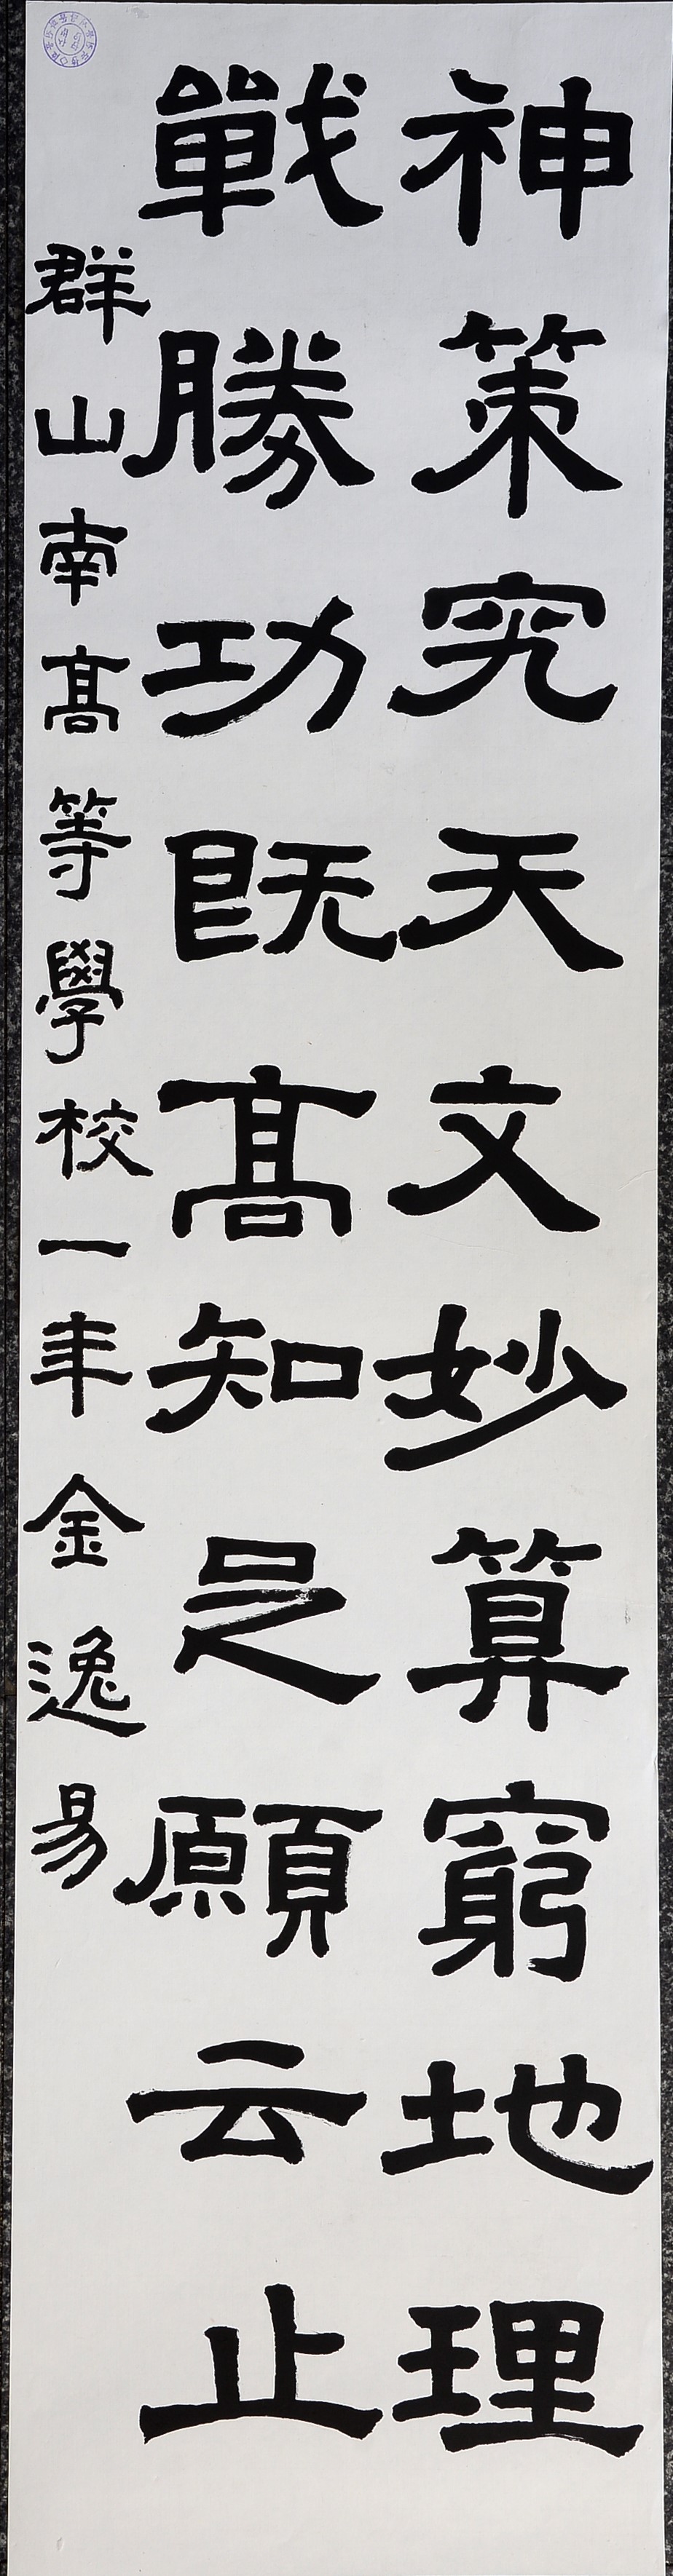 神策究天文妙算窮地理
戰勝功旣高知足願云止
群山南高等學校一年金逸易